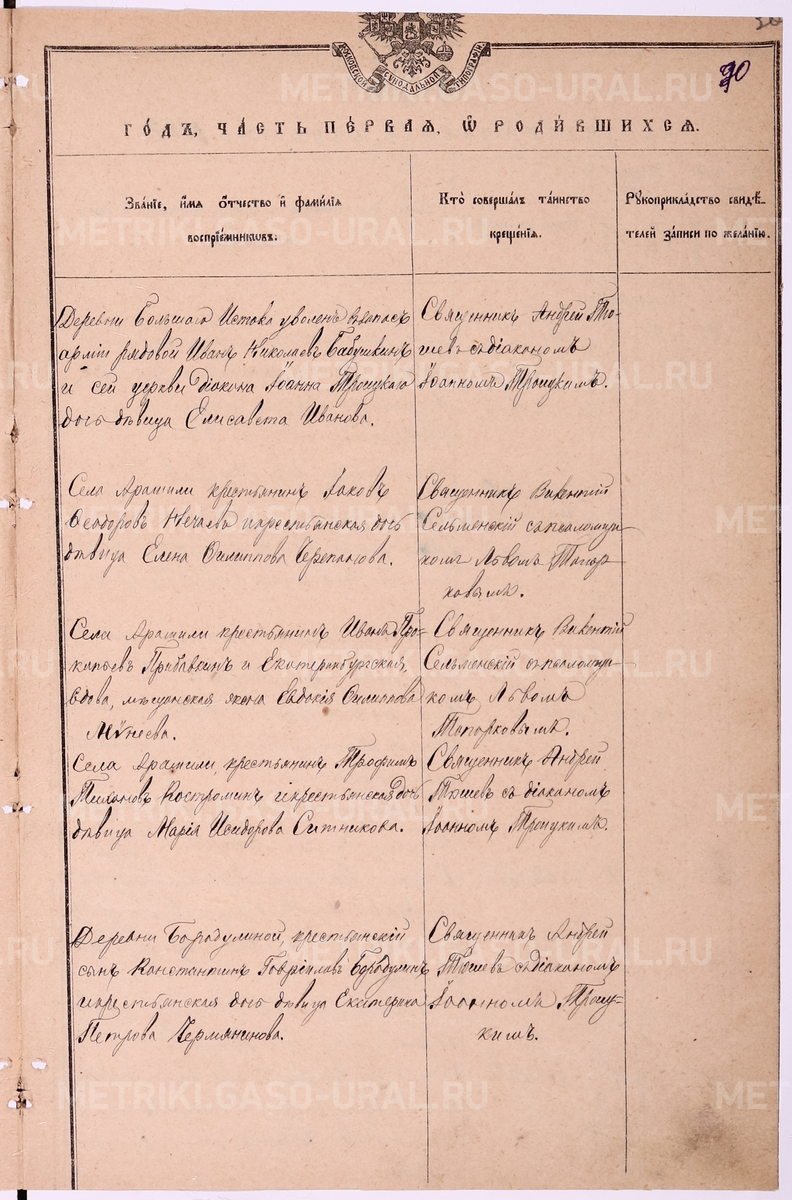 МОСКОВСКОЙ СѴНОДАЛЬНОЙ ТИПОГРАФІИ
90
ГО́ДЪ, ЧА́СТЬ ПЕ́РВАЯ, Ѡ҆ РОДИ́ВШИХСЯ.
Зва́ніе, и҆́мя ѻ҆́тчество и҆ фами́лія
воспріе́мниковъ.
Кто̀ соверша́лъ та́инство
креще́нія.
Рꙋкоприкла́дство свидѣ́-
телей за́писи по жела́нію.
Деревни Большаго Истока уволен. въ запасъ
арміи рядовой Иванъ Николаевъ Бабушкинъ
и сей церкви діакона Іоанна Троицкаго
дочь дѣвица Елисавета Иванова.
Священникъ Андрей Тю-
шевъ съ діакономъ
Іоанномъ Троицкимъ.
Села Арамили крестьянинъ Іаковъ
Ѳеодоровъ Нечаевъ и крестьянская дочь
дѣвица Елена Филиппова Черепанова.
Священникъ Викентій
Сельменскій съ псаломщи-
комъ Львомъ Топор-
ковымъ.
Села Арамили крестьянинъ Иванъ Про-
копьевъ Прибавкинъ и Екатеринбургская
вдова, мѣщанская жена Евдокія Филиппова
Священникъ Викентій
Сельменскій съ псаломщи-
комъ Львомъ
Топорковымъ.
Села Арамили, крестьянинъ Трофимъ
Тихановъ Костроминъ и крестьянская дочь
дѣвица Марія Исидорова Ситникова.
Священникъ Андрей
Тюшевъ съ діаканомъ
Іоанномъ Троицкимъ.
Деревни Бородулиной, крестьянскій
сынъ Константинъ Гавріиловъ Бородулинъ
и крестьянская дочь дѣвица Екатерина
Петрова Чермянинова.
Священникъ Андрей
Тюшевъ съ діаканомъ
Іоанномъ Троиц-
кимъ.
METRIKI.GASO-URAL.RU